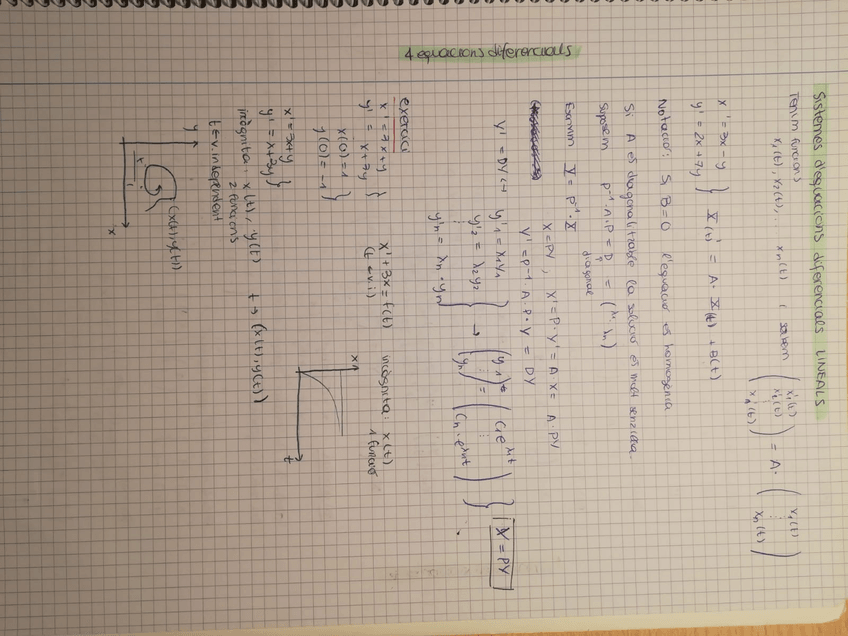 4 equacions diferencials
Sistemes d'equacions diferencials LINEALS
Tenim funcions
x₁(t), x₂(t), ... xn(t) i sabem (x₁'(t) x₂'(t) ⋮ xn'(t)) = A· (x₁(t) ⋮ xn(t))
x' = 3x - y
y' = 2x + 7y } X(t)' = A· X(t) + B(t)
Notació: Si B=0 l'equació és homogènia
Si A és diagonalitzable la solució és molt senzilla.
Suposem P⁻¹·A·P = D = (λ₁ λn)
diagonal
Escrivim X = P⁻¹·X
X=PY, X'=P·Y' = A X = A·PY
Y' = P⁻¹ A·P·Y = DY
Y' = DY ↔ y'₁ = λ₁y₁
y'₂ = λ₂y₂
y'n = λn·yn } → (y₁ ⋮ yn) = (C₁e^λ₁t ⋮ Cn·e^λnt) } X = PY
exercici
x' = 7x + y
y' = x + 7y }
x(0) = 1
y(0) = -1 }
x' + 3x = f(t) incògnita: x(t)
(t és v.i) 1 funció
x
t
x' = 7x + y
y' = x + 7y }
incògnita: x(t), y(t) t → (x(t), y(t))
2 funcions
t és v. independent
y
x
t
(x(t), y(t))